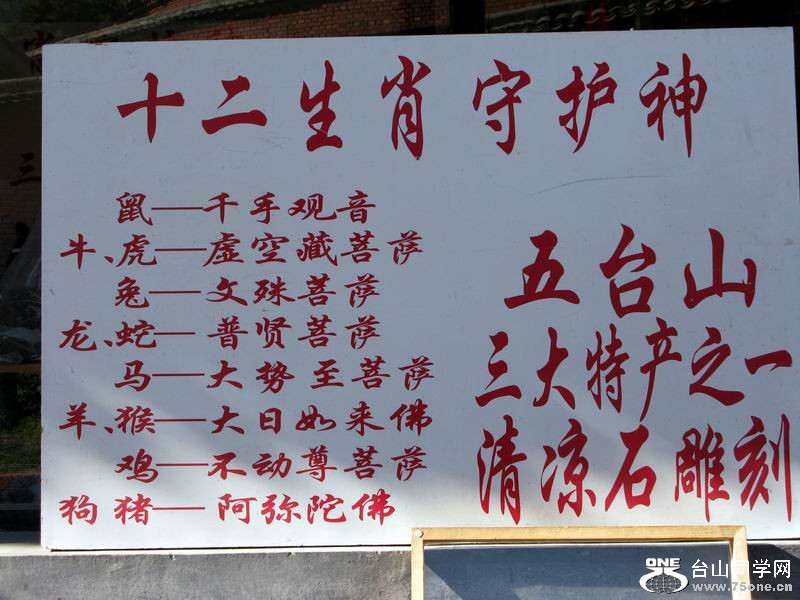 十二生肖守护神
鼠——千手观音
牛、虎——虚空藏菩萨
兔——文殊菩萨
龙、蛇——普贤菩萨
马——大势至菩萨
羊、猴——大日如来佛
鸡——不动尊菩萨
狗 猪——阿弥陀佛
五台山
三大特产之一
清凉石雕刻
ONE
台山中学网
www.75one.cn